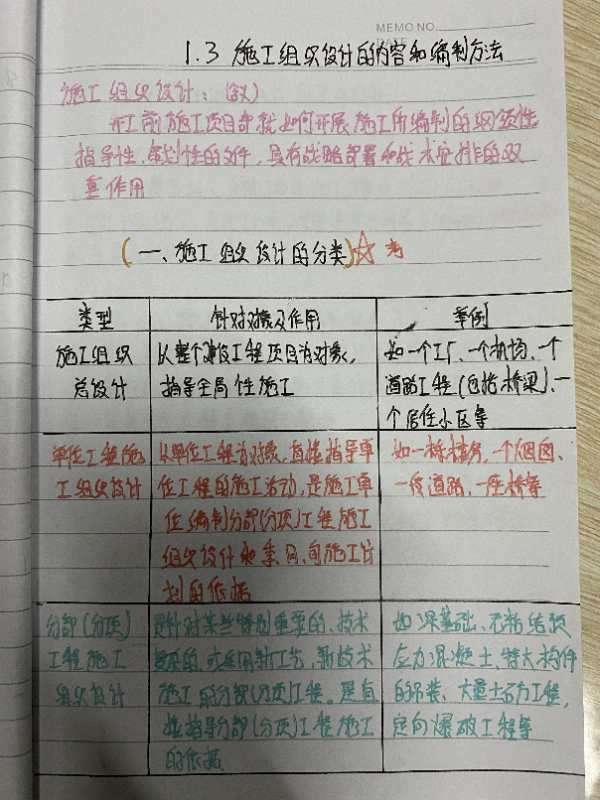 MEMO NO.
DATE
1.3 施工组织设计的内容和编制方法
施工组织设计：(定义)
开工前施工项目部就如何开展施工所编制的纲领性
指导性、策划性的文件，具有战略部署和战术安排的双
重作用
(一、施工组织设计的分类)☆考
类型 针对对象及作用 举例
施工组织 以整个建设工程项目为对象， 如一个工厂、一个机场、一个
总设计 指导全局性施工 道路工程(包括桥梁)、一
个居住小区等
单位工程施 以单位工程为对象，直接指导单 如一栋楼房，一个烟囱、
工组织设计 位工程的施工活动，是施工单 一段道路、一座桥等
位编制分部(分项)工程施工
组织设计和季、月、旬施工计
划的依据
分部(分项) 是针对某些特别重要的、技术 如深基础、无粘结预
工程施工 复杂的，或采用新工艺、新技术 应力混凝土、特大构件
组织设计 施工的分部(分项)工程。是直 的吊装、大量土石方工程，
接指导分部(分项)工程施工 定向爆破工程等
的依据